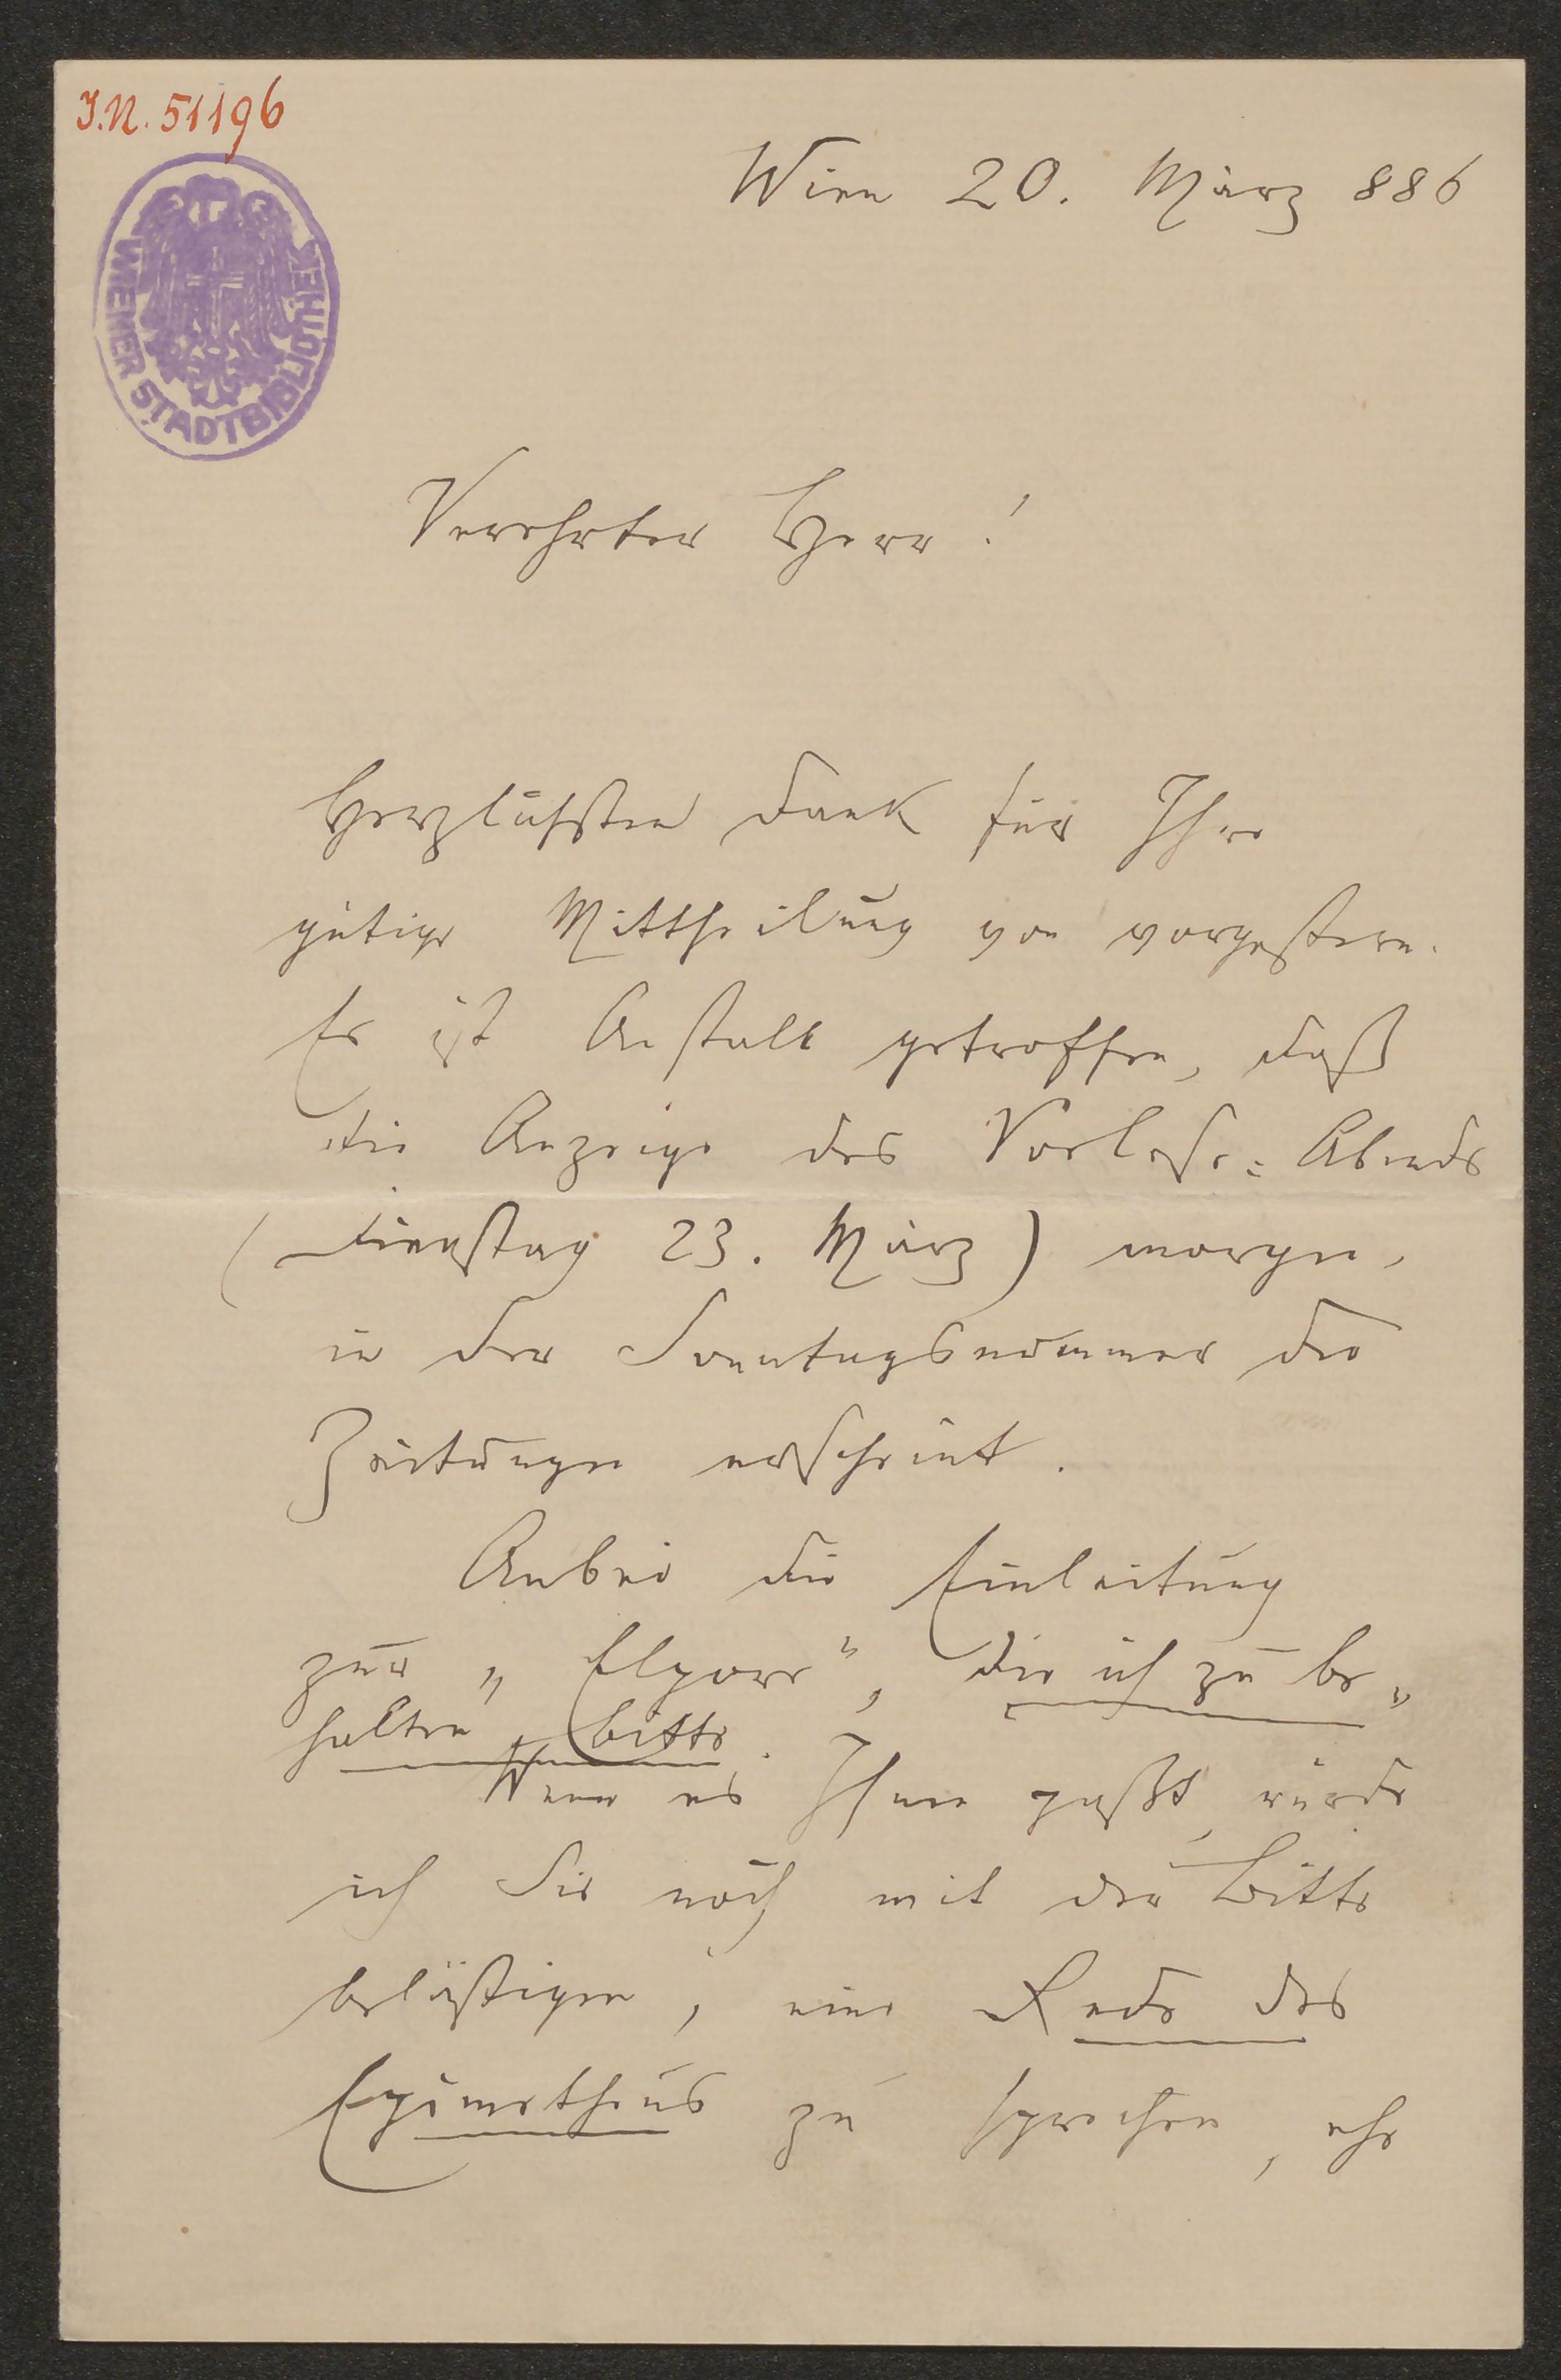 I.N. 51196
WIENER STADTBIBLIOTHEK
Wien 20. März 886
Verehrter Herr!
Herzlichsten Dank für Ihre
gütige Mittheilung von vorgestern.
Es ist Anstalt getroffen, daß
die Anzeige des Vorlese=Abends
(Dienstag 23. März) morgen,
in der Sonntagsnummer der
Zeitungen erscheint.
Anbei die Einleitung
zur „Elpore“, die ich zu be„
halten bitte.
Wenn es Ihnen paßt, würde
ich Sie noch mit der Bitte
belästigen, eine Rede des
Epimetheus zu sprechen, ehe